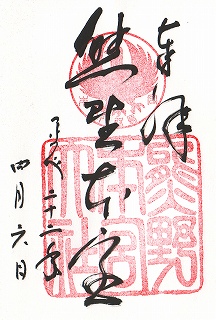 奉拝
熊野本宮
平成二十二年
四月六日
熊野
本宮
大社